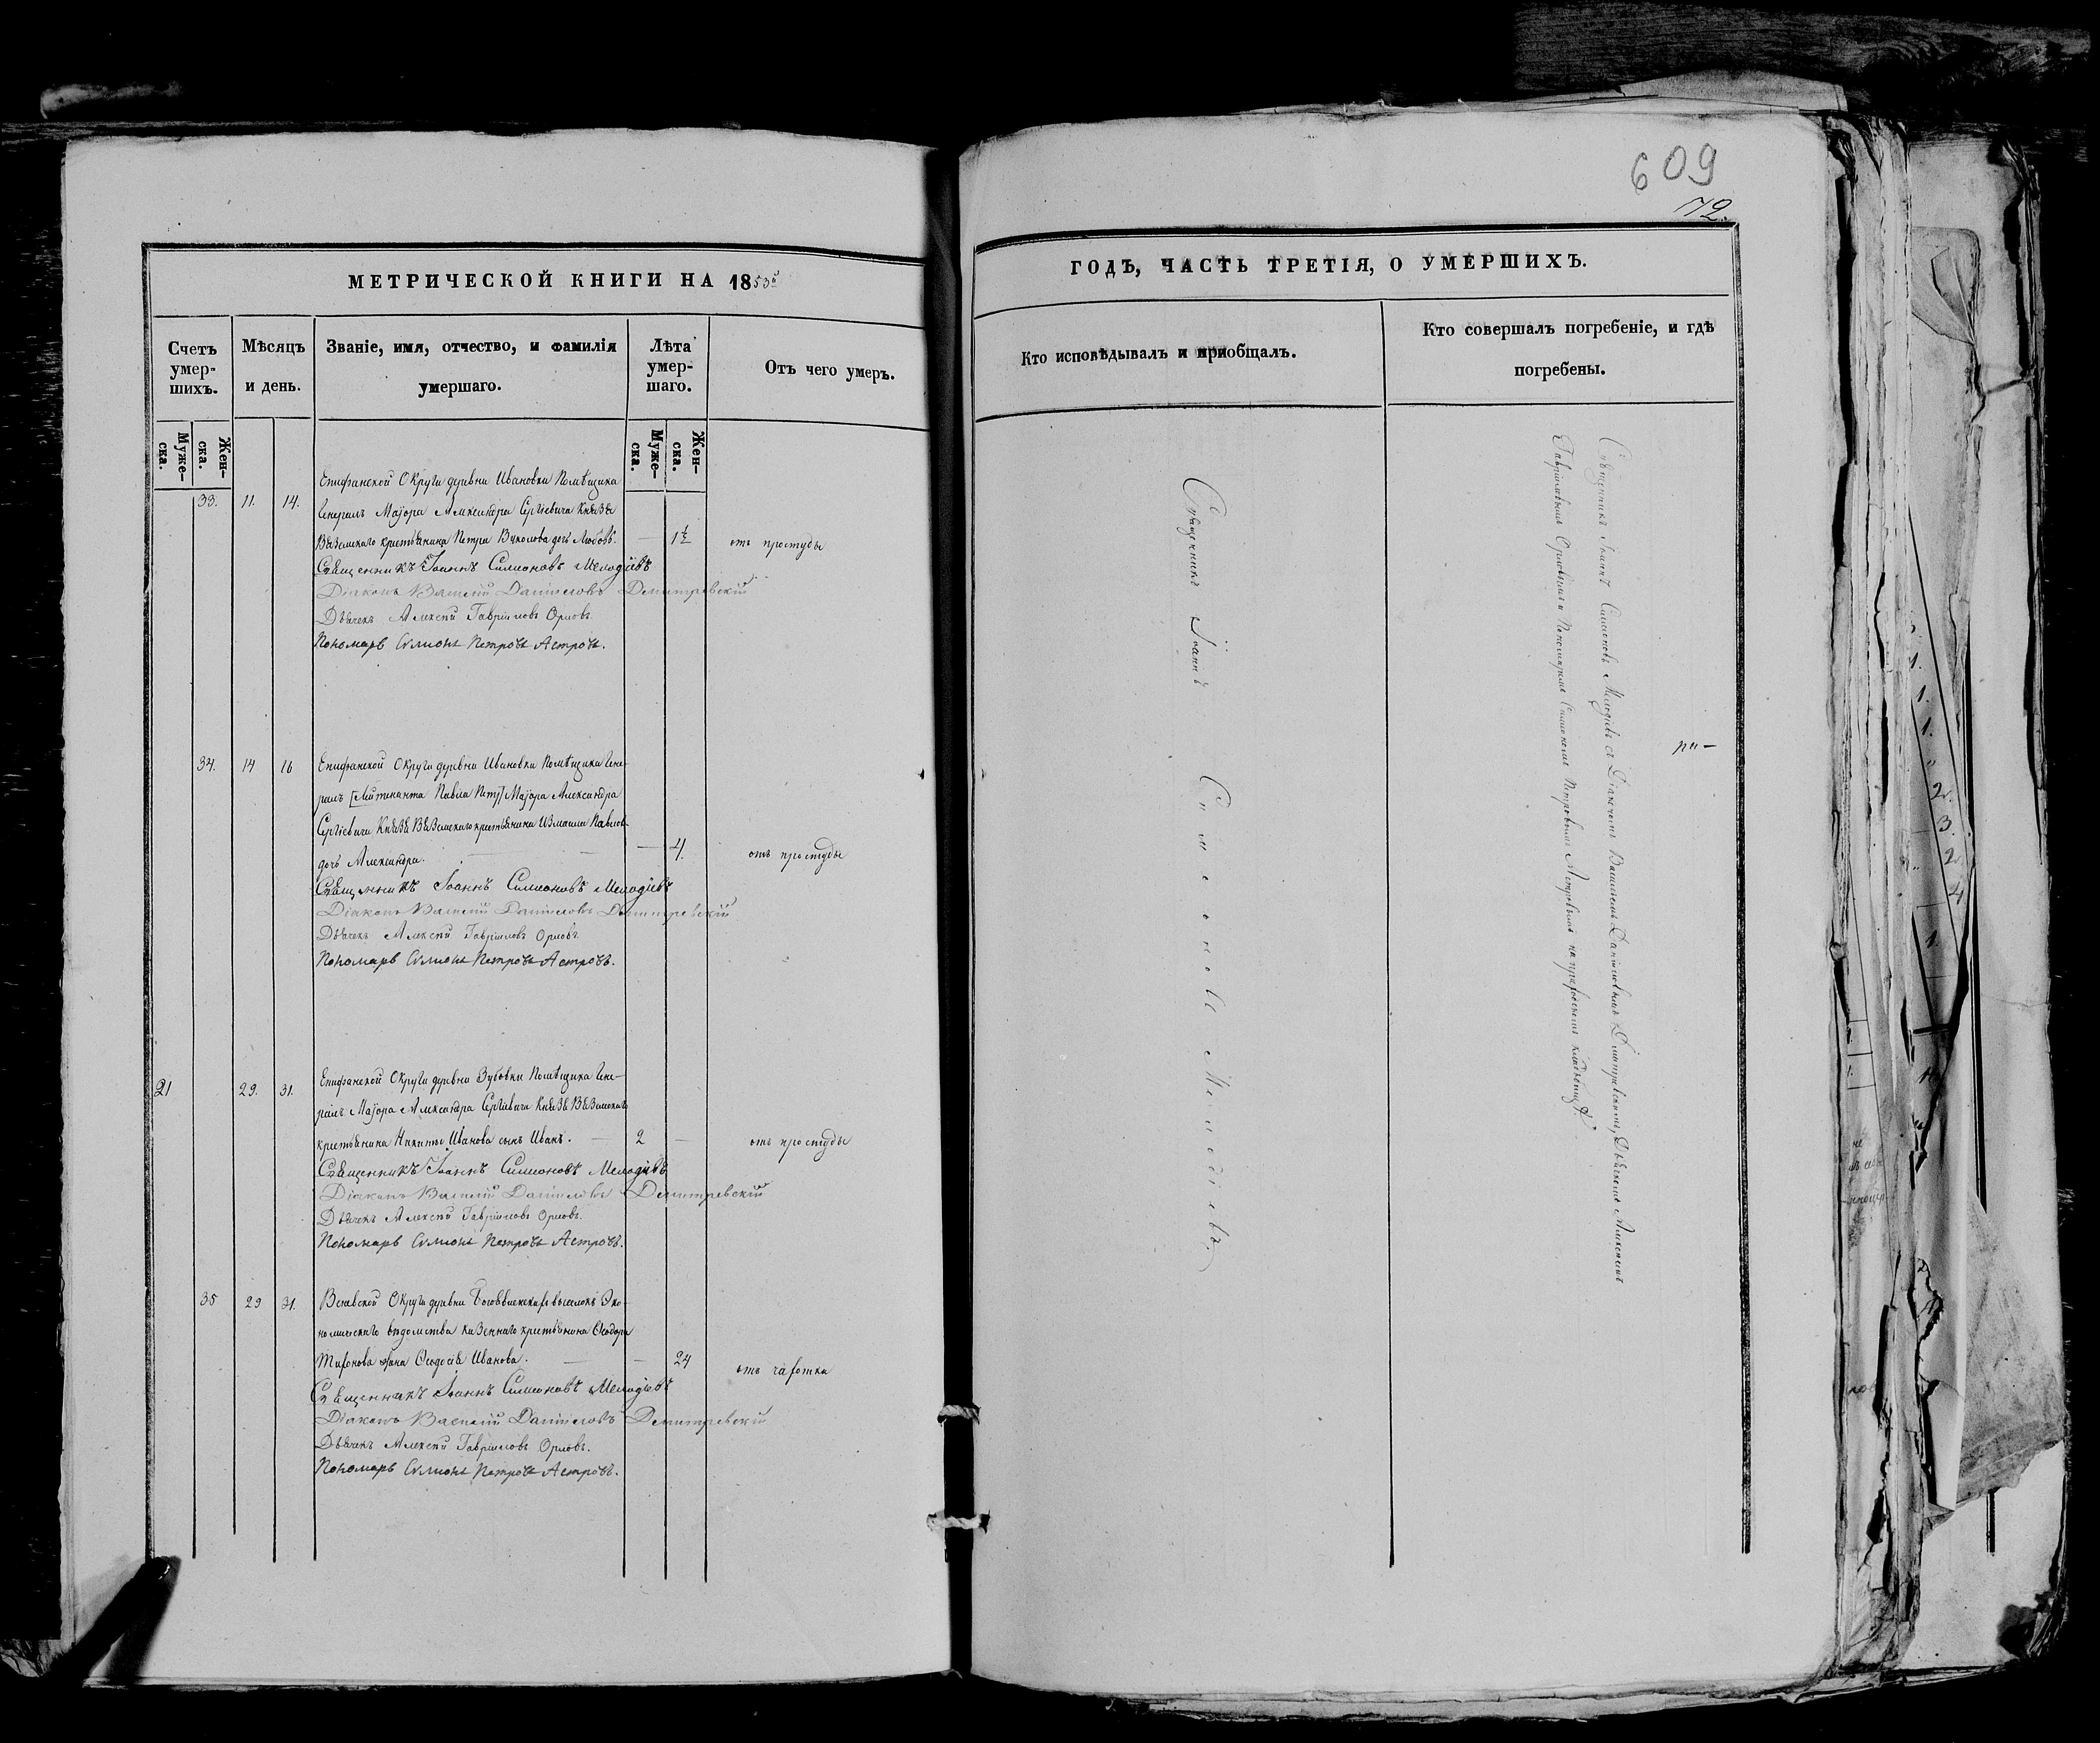 МЕТРИЧЕСКОЙ КНИГИ НА 1853й
Счетъ умер-шихъ.
Муже-ска.
Жен-ска.
Мѣсяцъ и день.
Званіе, имя, отчество, и фамилія умершаго.
Лѣта умер-шаго.
Муже-ска.
Жен-ска.
Отъ чего умеръ.
33. 11. 14.
Епифанской Округи деревни Ивановки Помѣщика
Генералъ Маіора Александра Сергіевича Князя
Вяземскаго крестьянина Петра Вуколова дочь Любовь. — 1½ отъ простуды
Священникъ Іоаннъ Симеоновъ Мелодіевъ
Діаконъ Василій Даніиловъ Демитревскій
Дьячекъ Алексѣй Гавріиловъ Орловъ.
Пономарь Сѵмеонъ Петровъ Астровъ.
34. 14 16
Епифанской Округи деревни Ивановки Помѣщика Гене-
ралъ [Лейтенанта Павла Петр] Маіора Александра
Сергіевича Князя Вяземскаго крестьянина Измаила Павлов
дочь Александра. — — — 4. отъ простуды
Священникъ Іоаннъ Симеоновъ Мелодіевъ
Діаконъ Василій Даніиловъ Демитревскій
Дьячекъ Алексѣй Гавріиловъ Орловъ.
Пономарь Сѵмеонъ Петровъ Астровъ.
21 29. 31.
Епифанской Округи деревни Зубовки Помѣщика Гене-
ралъ Маіора Александра Сергіевича Князя Вяземскаго
крестьянина Никиты Иванова сынъ Иванъ. — 2 — отъ простуды
Священникъ Іоаннъ Симеоновъ Мелодіевъ
Діаконъ Василій Даніиловъ Демитревскій
Дьячекъ Алексѣй Гавріиловъ Орловъ.
Пономарь Сѵмеонъ Петровъ Астровъ.
35 29 31.
Округи деревни Богоявленскихъ выселокъ Эко-
номическаго вѣдомства казеннаго крестьянина Ѳеодора
Тихонова жена Ѳеодосія Иванова. — — 24 отъ чахотки
Священникъ Іоаннъ Симеоновъ Мелодіевъ
Діаконъ Василій Даніиловъ Демитревскій
Дьячекъ Алексѣй Гавріиловъ Орловъ.
Пономарь Сѵмеонъ Петровъ Астровъ.
609
72.
ГОДЪ, ЧАСТЬ ТРЕТІЯ, О УМЕРШИХЪ.
Кто исповѣдывалъ и пріобщалъ.
Кто совершалъ погребеніе, и гдѣ погребены.
Священникъ Іоаннъ Симеоновъ Мелодіевъ.
Священникъ Іоаннъ Симеоновъ Мелодіевъ съ Діакономъ Василіемъ Даніиловымъ Димитревскимъ, Дьячкомъ Алексѣемъ
Гавріиловымъ Орловымъ и Пономаремъ Симеономъ Петровымъ Астровымъ на приходскомъ кладбищѣ.